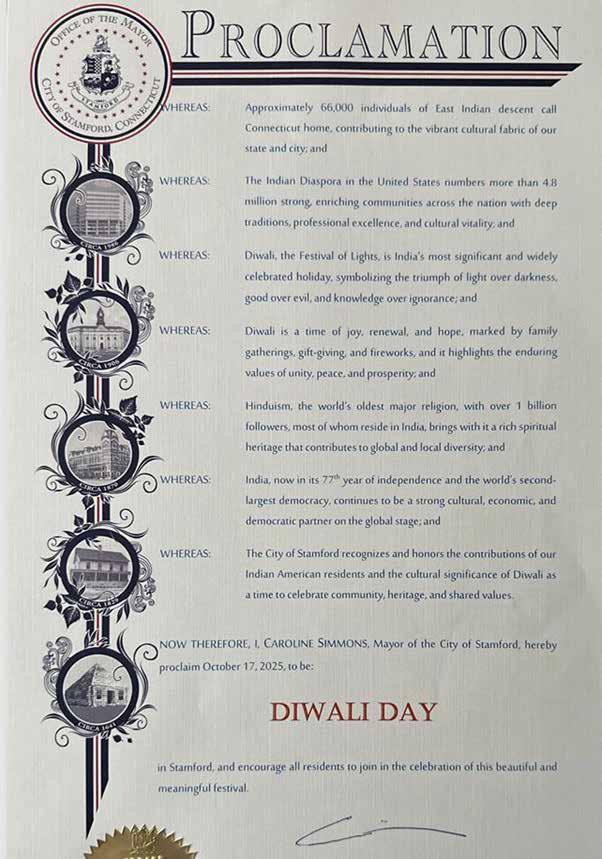 OFFICE OF THE MAYOR
CITY OF STAMFORD, CONNECTICUT
STAMFORD
PROCLAMATION
WHEREAS: Approximately 66,000 individuals of East Indian descent call
Connecticut home, contributing to the vibrant cultural fabric of our
state and city; and
WHEREAS: The Indian Diaspora in the United States numbers more than 4.8
million strong, enriching communities across the nation with deep
traditions, professional excellence, and cultural vitality; and
CIRCA 1986
WHEREAS: Diwali, the Festival of Lights, is India's most significant and widely
celebrated holiday, symbolizing the triumph of light over darkness,
good over evil, and knowledge over ignorance; and
WHEREAS: Diwali is a time of joy, renewal, and hope, marked by family
gatherings, gift-giving, and fireworks, and it highlights the enduring
values of unity, peace, and prosperity; and
CIRCA 1906
WHEREAS: Hinduism, the world's oldest major religion, with over 1 billion
followers, most of whom reside in India, brings with it a rich spiritual
heritage that contributes to global and local diversity; and
WHEREAS: India, now in its 77th year of independence and the world's second-
largest democracy, continues to be a strong cultural, economic, and
democratic partner on the global stage; and
CIRCA 1870
WHEREAS: The City of Stamford recognizes and honors the contributions of our
Indian American residents and the cultural significance of Diwali as
a time to celebrate community, heritage, and shared values.
CIRCA
NOW THEREFORE, I, CAROLINE SIMMONS, Mayor of the City of Stamford, hereby
proclaim October 17, 2025, to be:
DIWALI DAY
CIRCA 1641
in Stamford, and encourage all residents to join in the celebration of this beautiful and
meaningful festival.